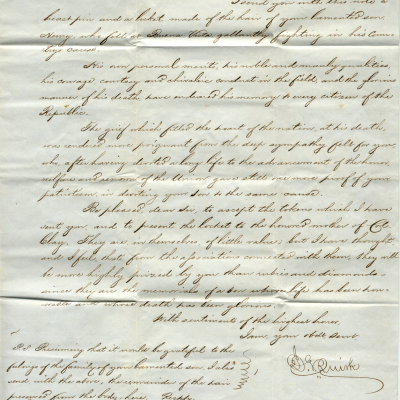 I send you with this note a
breast pin and a locket made of the hair of your lamented son
Henry who fell at Buena Vista gallantly fighting in his Coun-
try's cause.
His rare personal merits, his noble and manly qualities,
his courage courtesy and chivalric conduct in the field, and the glorious
manner of his death, have endeared his memory to every citizen of the
Republic.
The grief which filled the heart of the nation, at his death,
was rendered more poignant from the deep sympathy felt for you,
who after having devoted a long life to the advancement of the honor,
welfare and renown of the Union, gave still one more proof of your
patriotism, in devoting your son to the same cause.
Be pleased, dear Sir, to accept the tokens which I have
sent you, and to present the locket to the honored mother of Col.
Clay. They are in themselves of little value, but I have thought,
and I feel that, from the associations connected with them, they will
be more highly prized by you than rubies and diamonds
since they are the memorials of a son whose life has been hon-
orable and whose death has been glorious.
With sentiments of the highest honor
I am your obdt Servt
Quirk
P.S. Presuming that it would be grateful to the
feelings of the family of your lamented son, I also
send with the above, the remainder of the hair
preserved from the body, here.